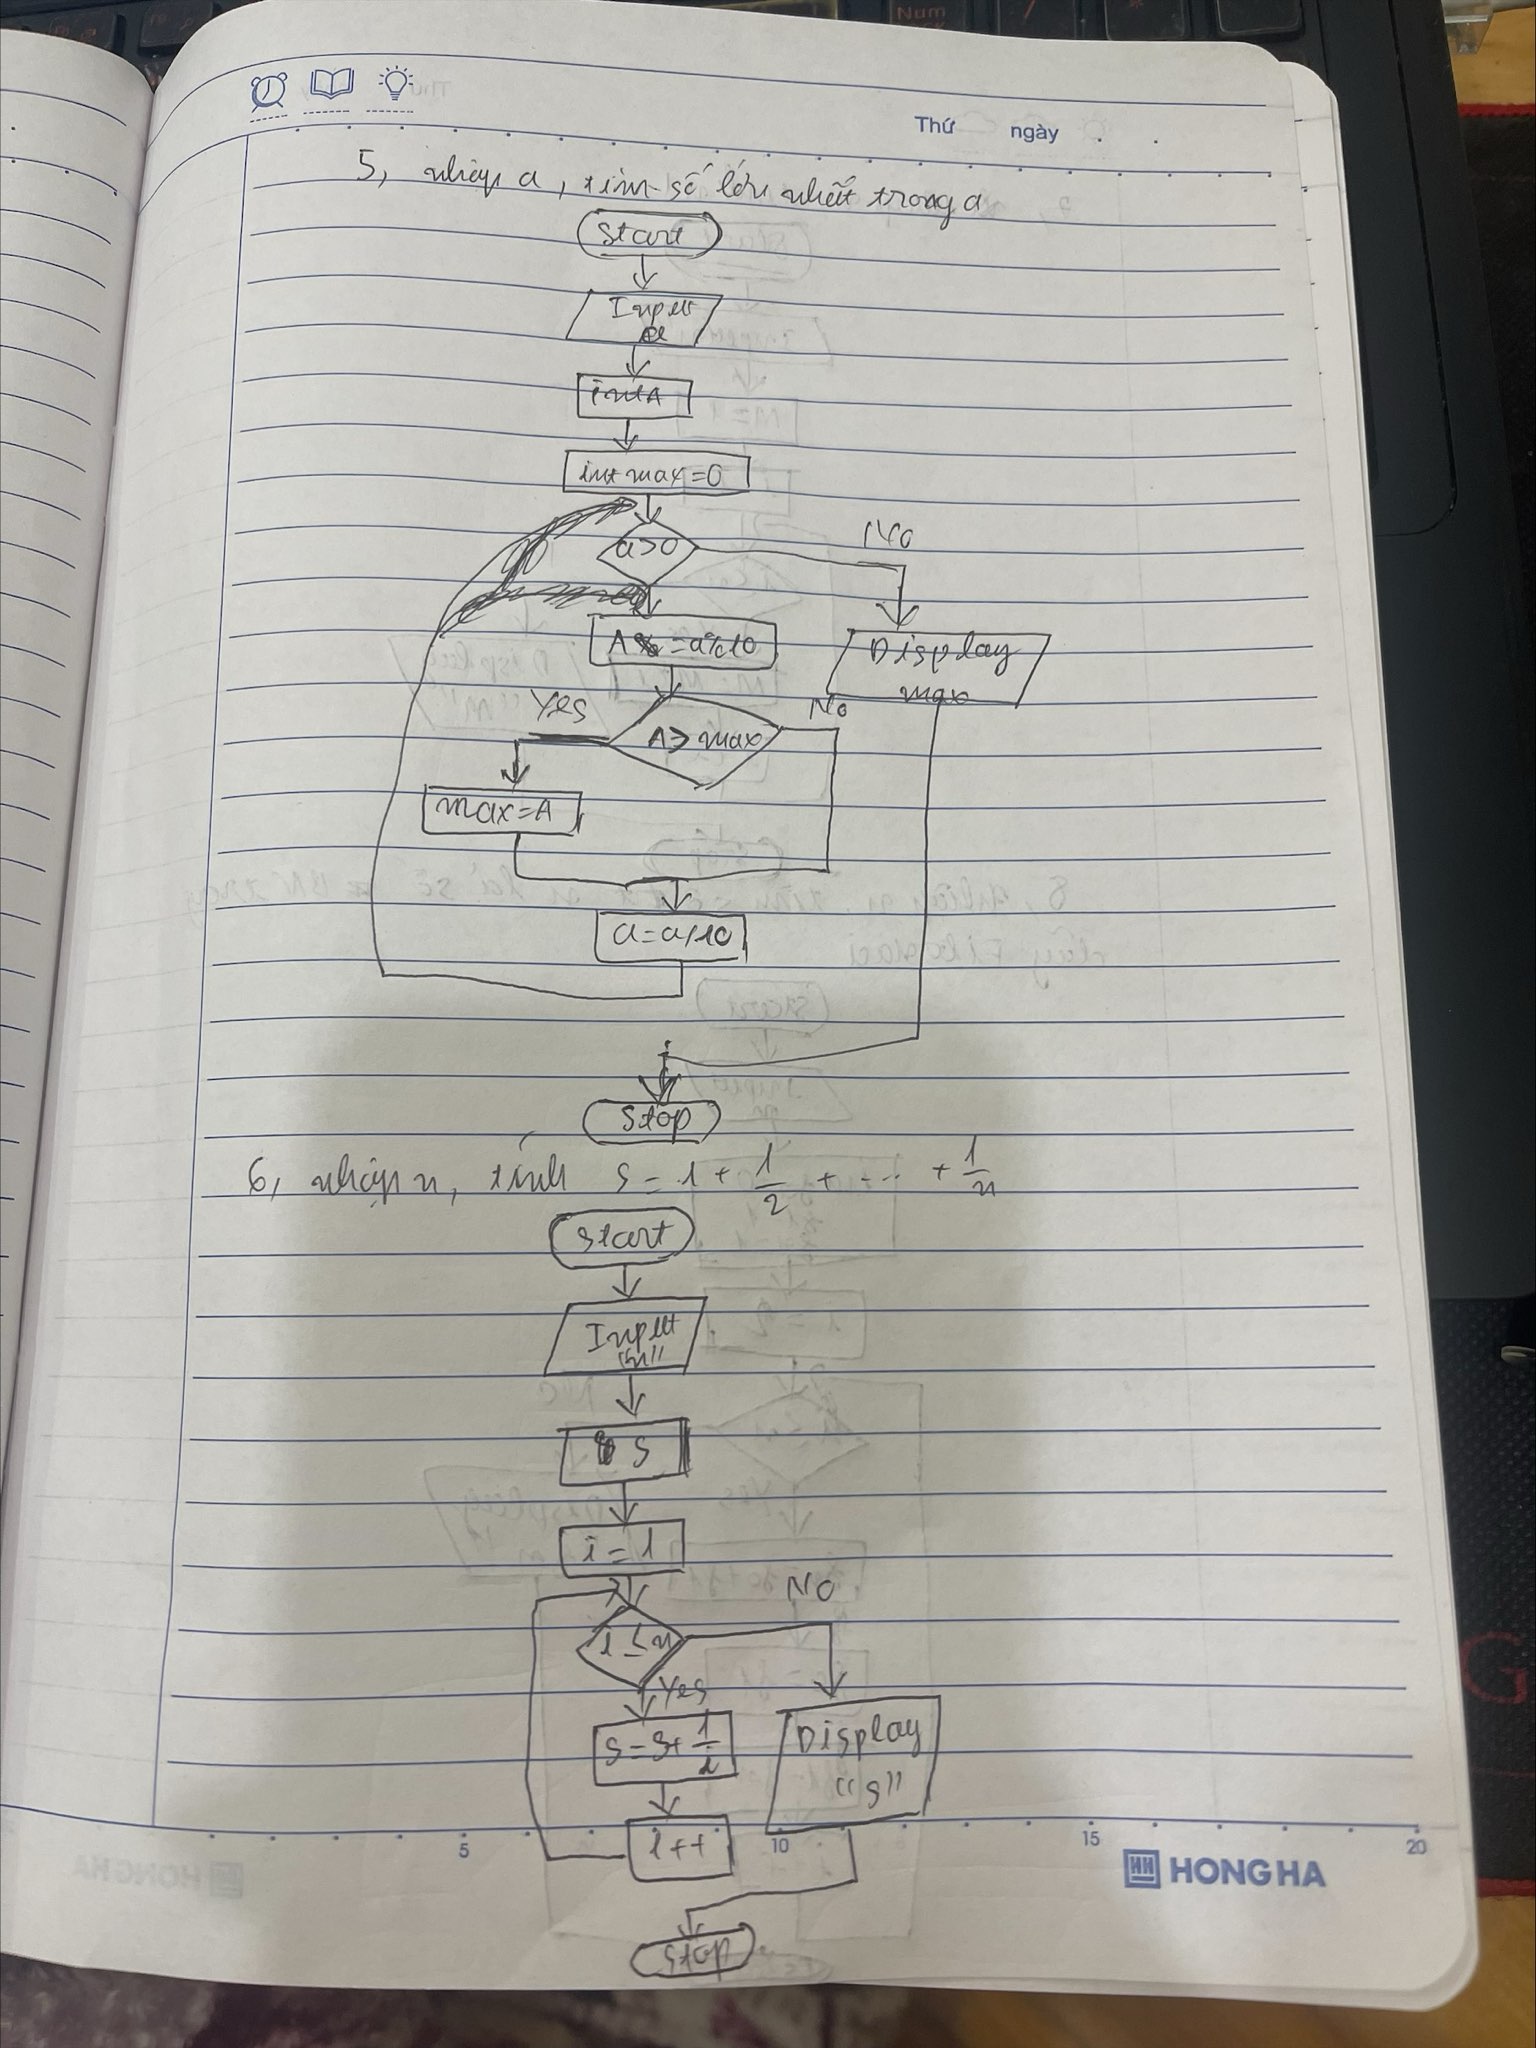 Num
Thứ ngày
5, nhập a, tìm số lớn nhất trong a
Start
Input
a
int A
int max = 0
a > 0
No
A = a % 10
Display
max
Yes
No
A > max
max = A
a = a / 10
Stop
6, nhập n, tính S = 1 + 1/2 + ... + 1/n
Start
Input
"n"
S
i = 1
NO
i ≤ n
Yes
S = S + 1/i
Display
"S"
i++
5 10 15 20
HONG HA
Stop